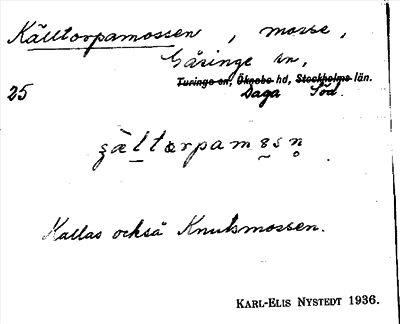 Källtorpamossen, mosse,
Gåsinge sn,
Turinge sn, Öknebo hd, Stockholms län.
25 Daga Söd.
Kallas också Knutsmossen.
KARL-ELIS NYSTEDT 1936.